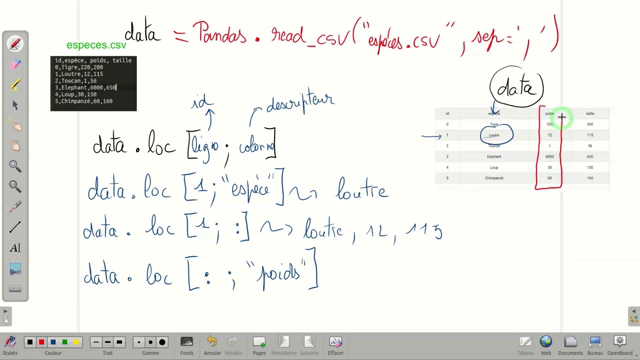 data = Pandas.read_csv("espèces.csv", sep=',')
especes.csv
id,espèce, poids, taille
0,Tigre,220,200
1,Loutre,12,115
2,Toucan,1,56
3,Elephant,6000,650
4,Loup,30,150
5,Chimpanzé,60,160
data
id descripteur
id poids taille
0 Tigre 220 200
1 Loutre 12 115
2 Toucan 1 56
3 Elephant 6000 650
4 Loup 30 150
5 Chimpanzé 60 160
data.loc [ligne ; colonne]
data.loc [1 ; "espèce"] ~> loutre
data.loc [1 ; :] ~> loutre, 12, 115
data.loc [: ; "poids"]
Stylos Couleur Trait Gomme Annuler Refaire Pages Effacer Web Documents Bureau OpenBoard